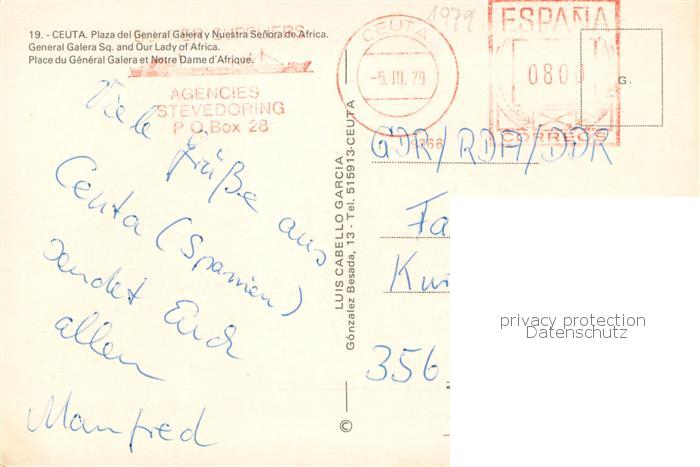 19. - CEUTA. Plaza del General Galera y Nuestra Señora de Africa.
General Galera Sq. and Our Lady of Africa.
Place du Général Galera et Notre Dame d'Afrique.
AGENCIES
STEVEDORING
P.O.Box 28
Viele Grüße aus
Ceuta (Spanien)
sendet Euch
allen
Manfred
LUIS CABELLO GARCIA
Gónzalez Besada, 13 - Tel. 515913-CEUTA
©
1979
CEUTA
-5. III. 79
ESPAÑA
0800
CORREOS
G.
GDR/RDA/DDR
Fa
356
privacy protection
Datenschutz